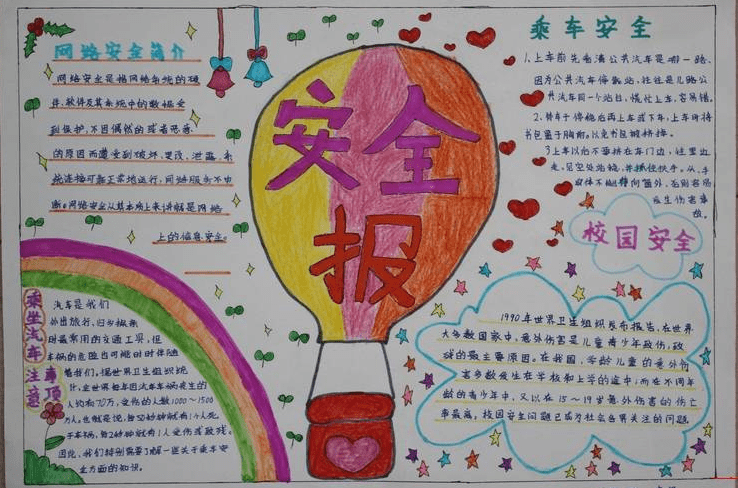 网络安全简介
网络安全是指网络系统的硬
件、软件及其系统中的数据受
到保护,不因偶然的或者恶意
的原因而遭受到破坏、更改、泄露、系
统连续可靠正常地运行,网络服务不中
断。网络安全从其本质上来讲就是网络
上的信息安全。
安全
报
乘车安全
1、上车前先看清公共汽车是哪一路,
因为公共汽车停靠站,往往是几路公
共汽车同一个站台,慌忙上车,容易错。
2、待车子停稳后再上车或下车,上车时将
书包置于胸前,以免书包被挤掉。
3、上车以后不要挤在车门边,往里边
走,见空处站稳,并抓住扶手。头、手
身体不能伸向窗外,否则容易
发生伤害事
故。
校园安全
乘坐汽车注意
事项
汽车是我们
外出旅行、
时最常用的交通工具,但
车祸的危险也可能时时伴随
着我们,据世界卫生组织统
计,全世界每年因汽车车祸丧生的
人约有70万,受伤的人数1000~1500
万人。也就是说,每50秒钟就有1个人死
于车祸,每2秒钟就有1人受伤或致残。
因此,我们特别需要了解一些关于乘车安
全方面的知识。
1990年世界卫生组织发布报告,在世界
大多数国家中,意外伤害是儿童青少年致伤、致
残的最主要原因。在我国,学龄儿童的意外伤
害多数发生在学校和上学的途中;而在不同年
龄的青少年中,又以在15~19岁意外伤害的伤亡
率最高,校园安全问题已成为社会各界关注的问题。